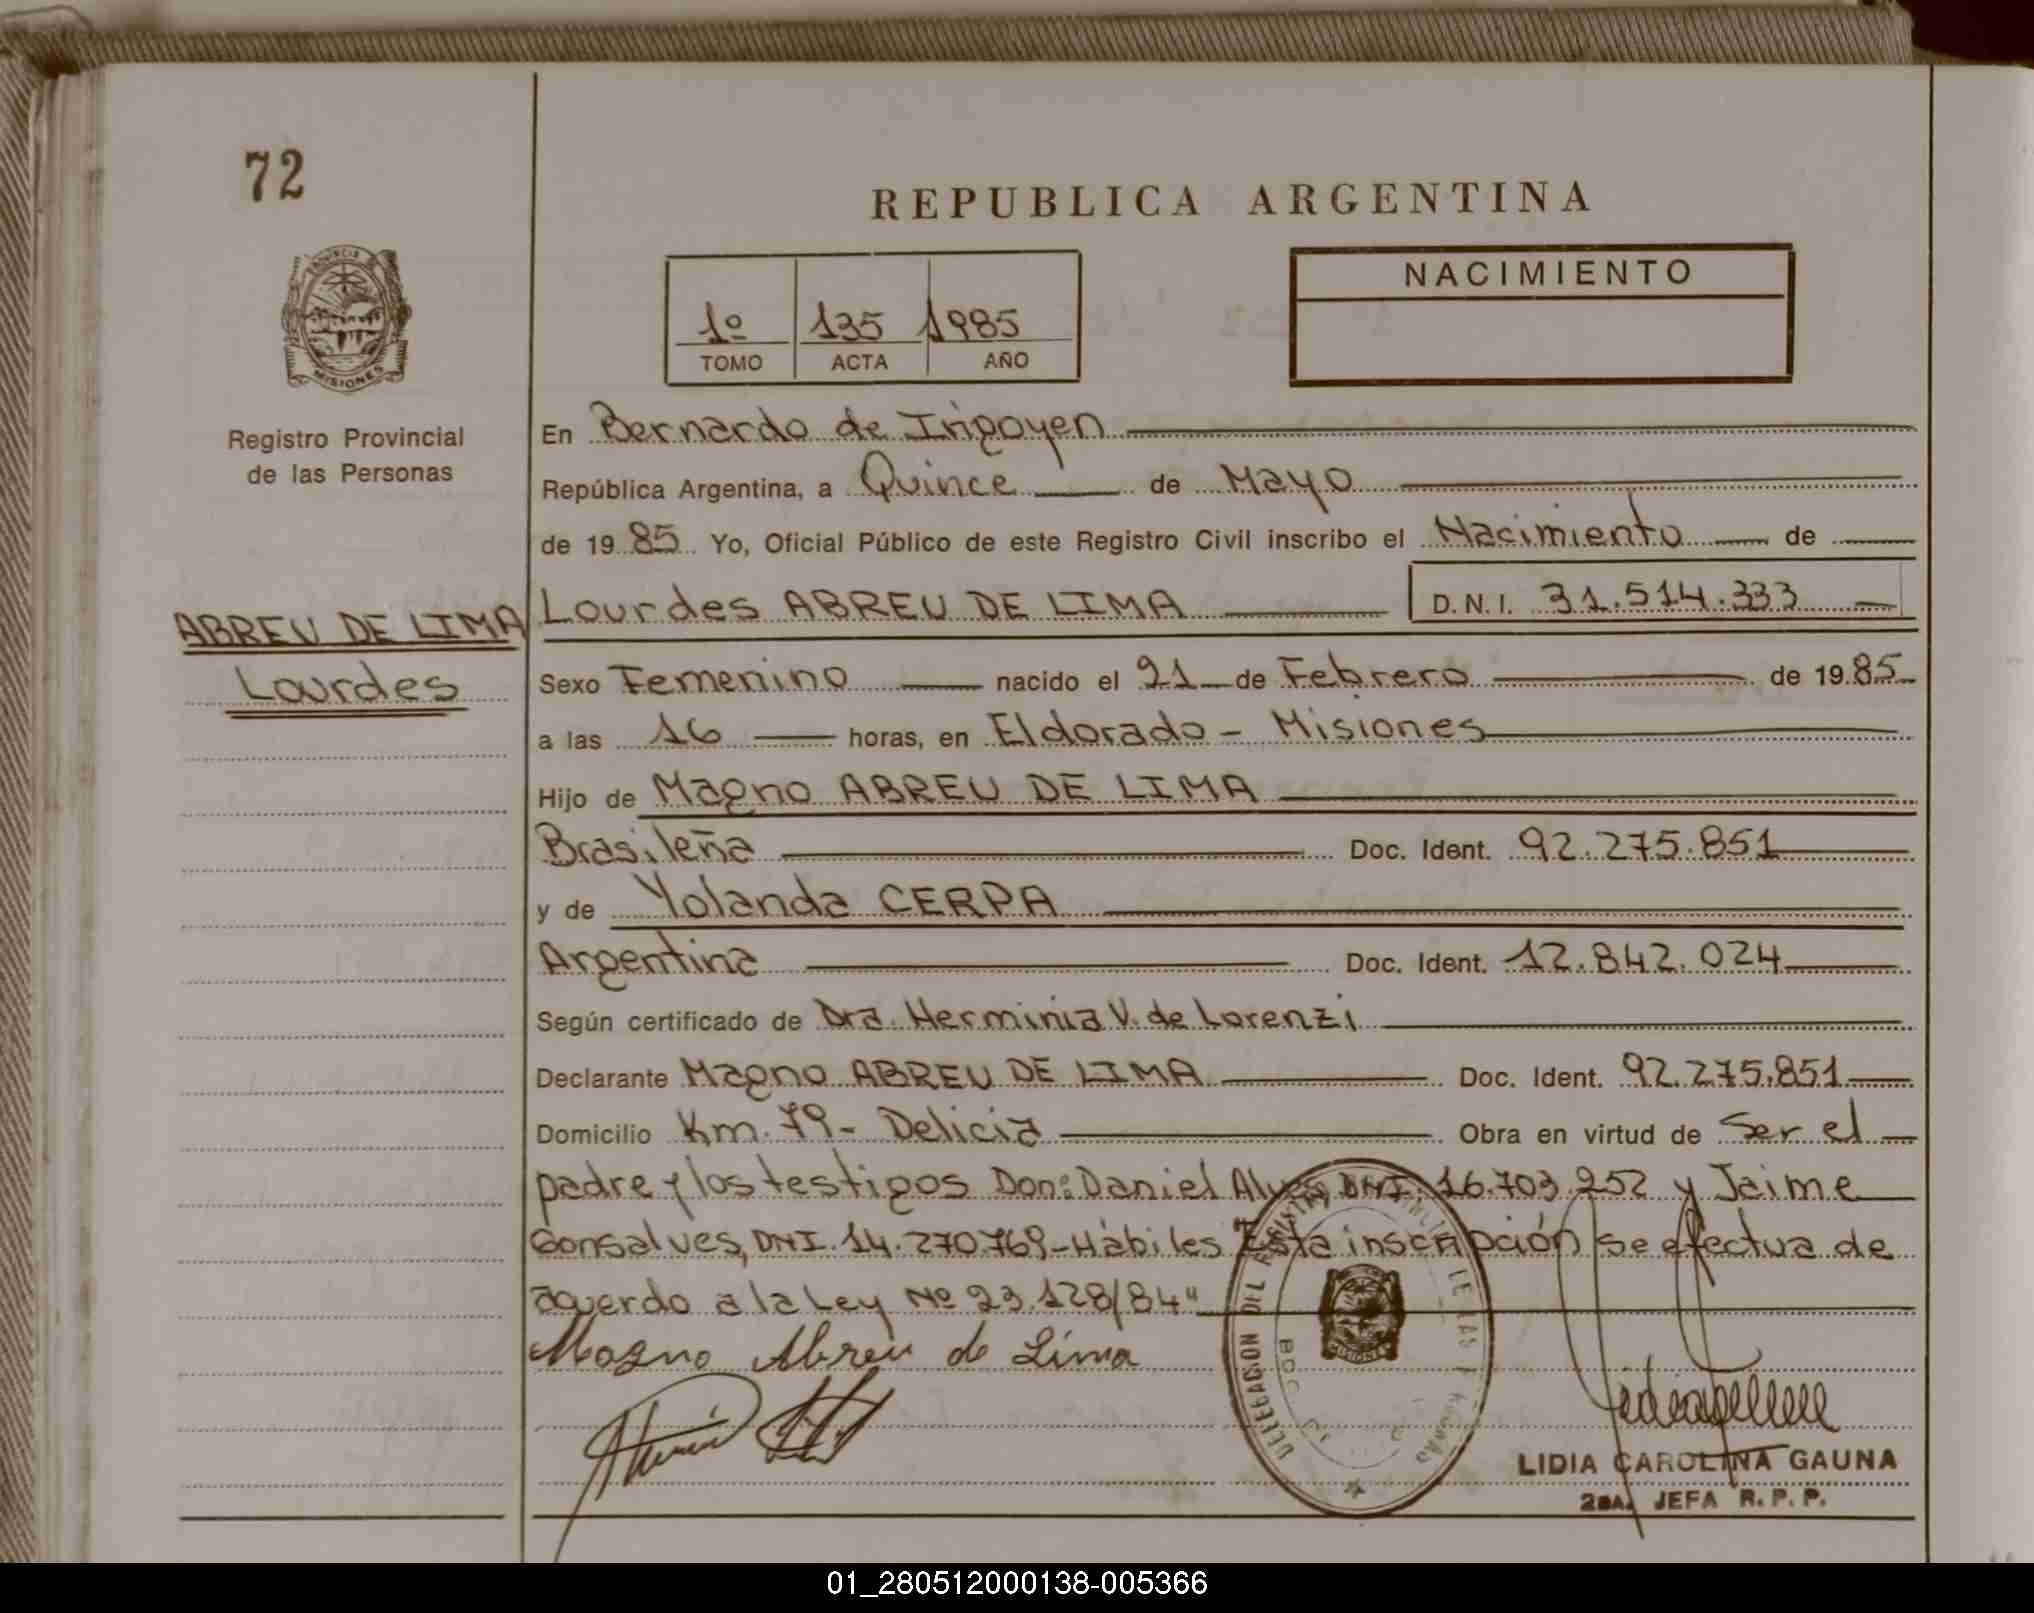 72
REPUBLICA ARGENTINA
PROVINCIA
MISIONES
1º 135 1985
TOMO ACTA AÑO
NACIMIENTO
Registro Provincial
de las Personas
ABREU DE LIMA
Lourdes
En Bernardo de Irigoyen
República Argentina, a Quince de Mayo
de 1985 Yo, Oficial Público de este Registro Civil inscribo el Nacimiento de
Lourdes ABREU DE LIMA D.N.I. 31.514.333
Sexo Femenino nacido el 21 de Febrero de 1985
a las 16 horas, en Eldorado - Misiones
Hijo de Magno ABREU DE LIMA
Brasileña Doc. Ident. 92.275.851
y de Yolanda CERPA
Argentina Doc. Ident. 12.842.024
Según certificado de Dra. Herminia V. de Lorenzi
Declarante Magno ABREU DE LIMA Doc. Ident. 92.275.851
Domicilio Km. 79 - Delicia Obra en virtud de Ser el
padre y los testigos Don: Daniel DNI. 16.703.252 y Jaime
Gonsalves, DNI. 14.270.769 - Hábiles Esta inscripción se efectua de
acuerdo a la Ley Nº 23.128/84"
Magno Abreu de Lima
DELEGACION DEL REGISTRO DE LAS
MISIONES
LIDIA CAROLINA GAUNA
2DA. JEFA R.P.P.
01_280512000138-005366